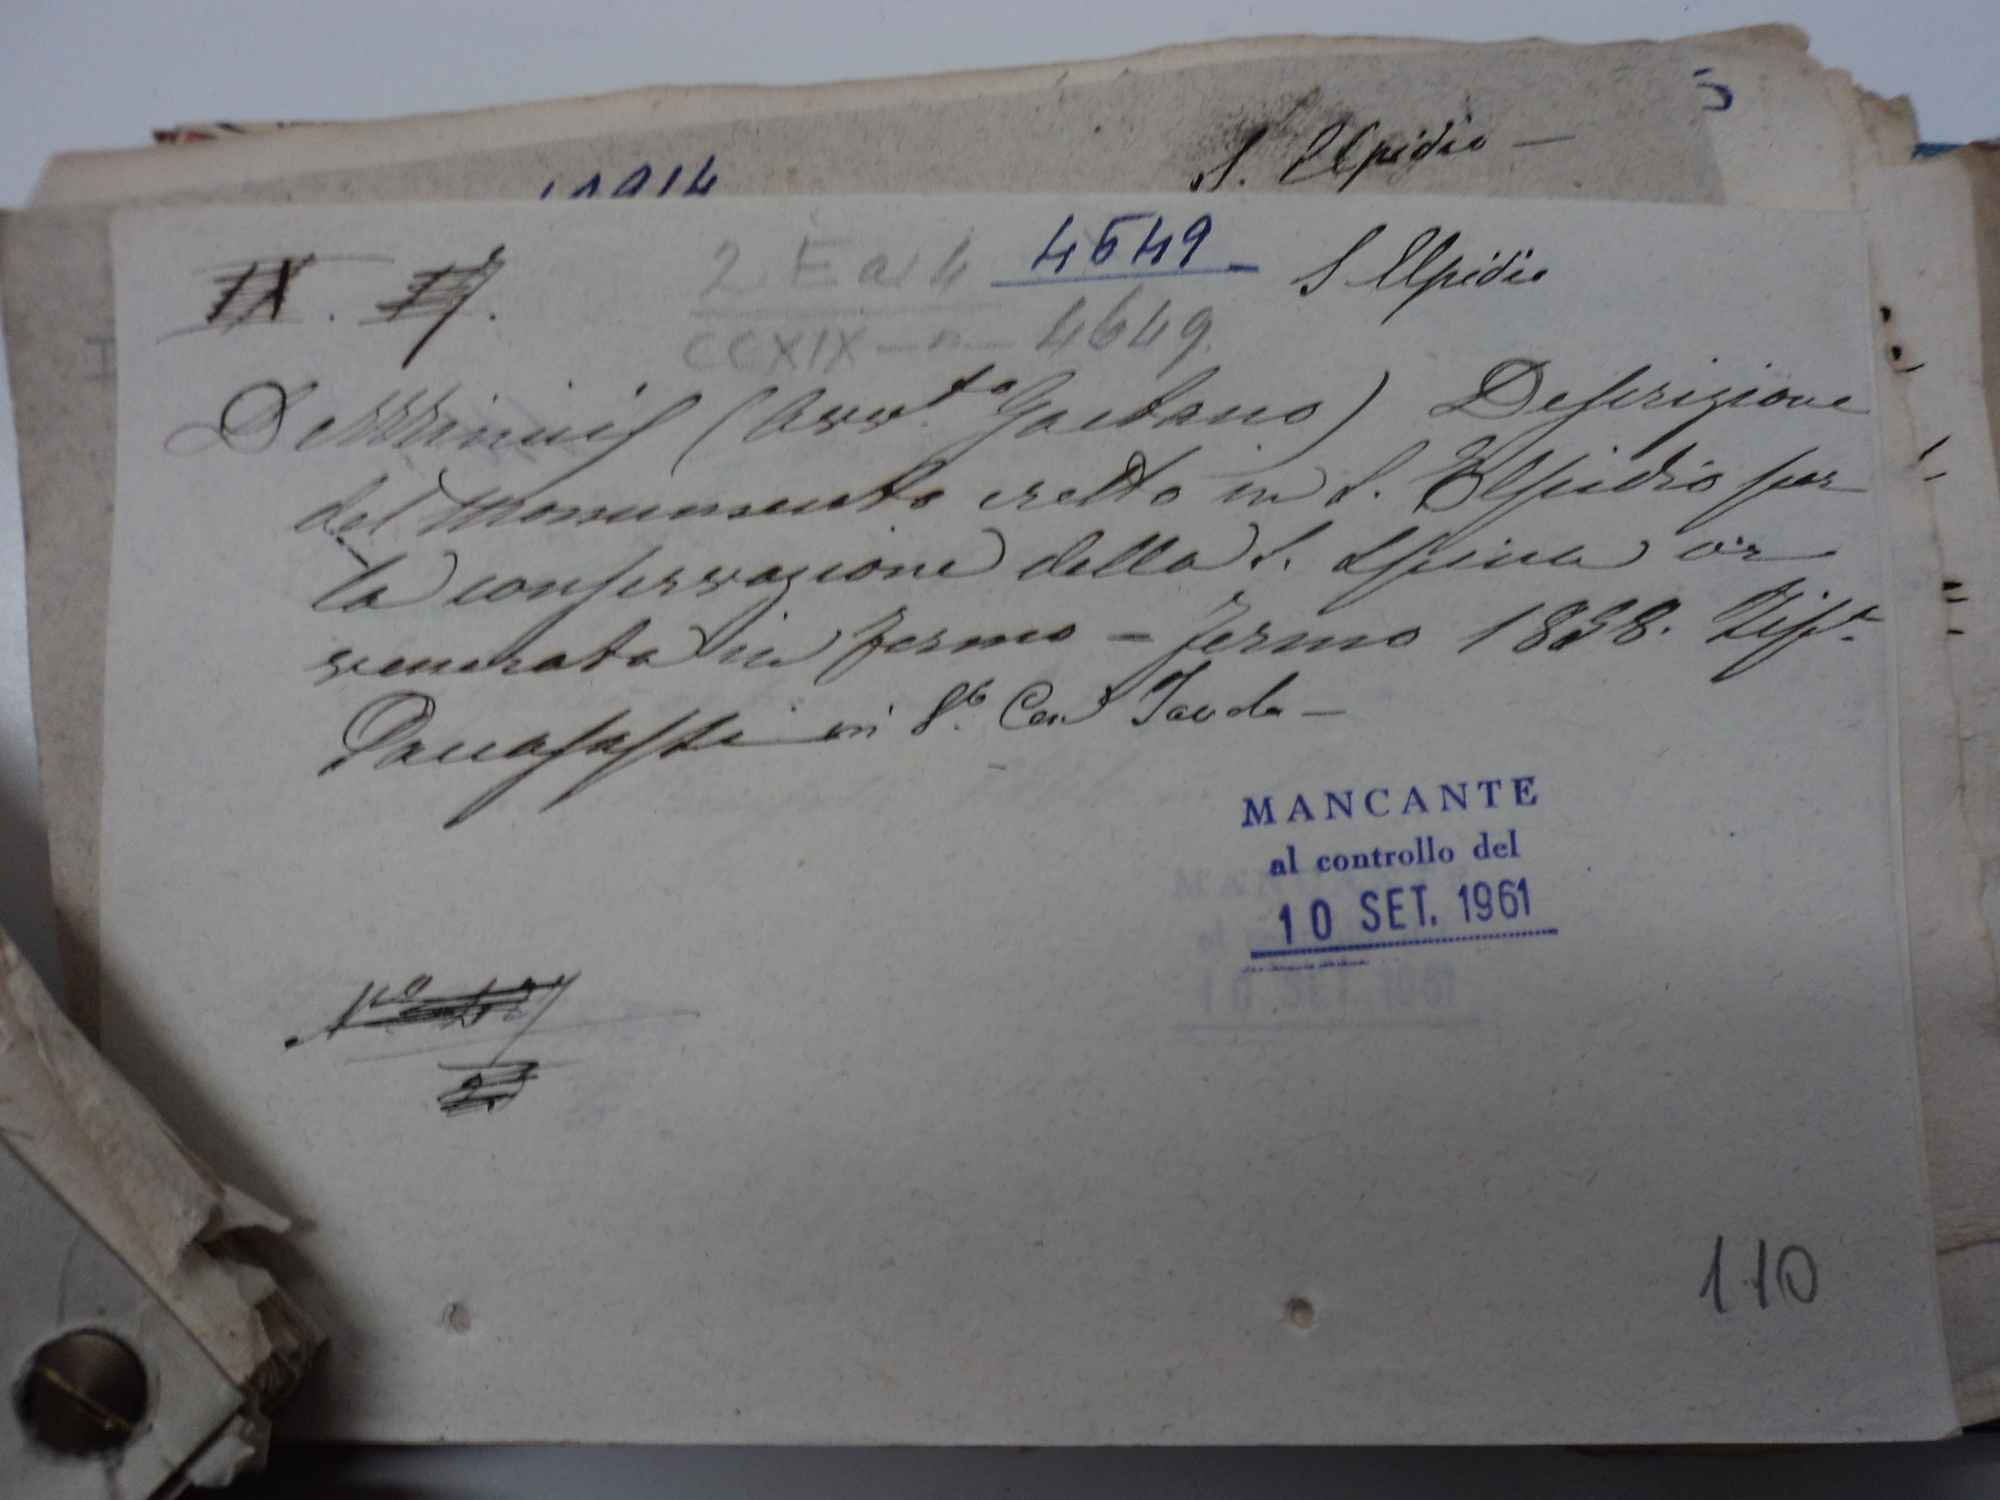 S. Elpidio —
4649
2 E a 4
S Elpidio
CCXIX — n — 4649.
IX.
De Minicis (Avv.to Gaetano) Descrizione
del Monumento eretto in S. Elpidio per
la conservazione della S. Spina or
venerata in Fermo — Fermo 1838. Tip.
in 8.° Con Tavola —
MANCANTE
al controllo del
10 SET. 1961
110